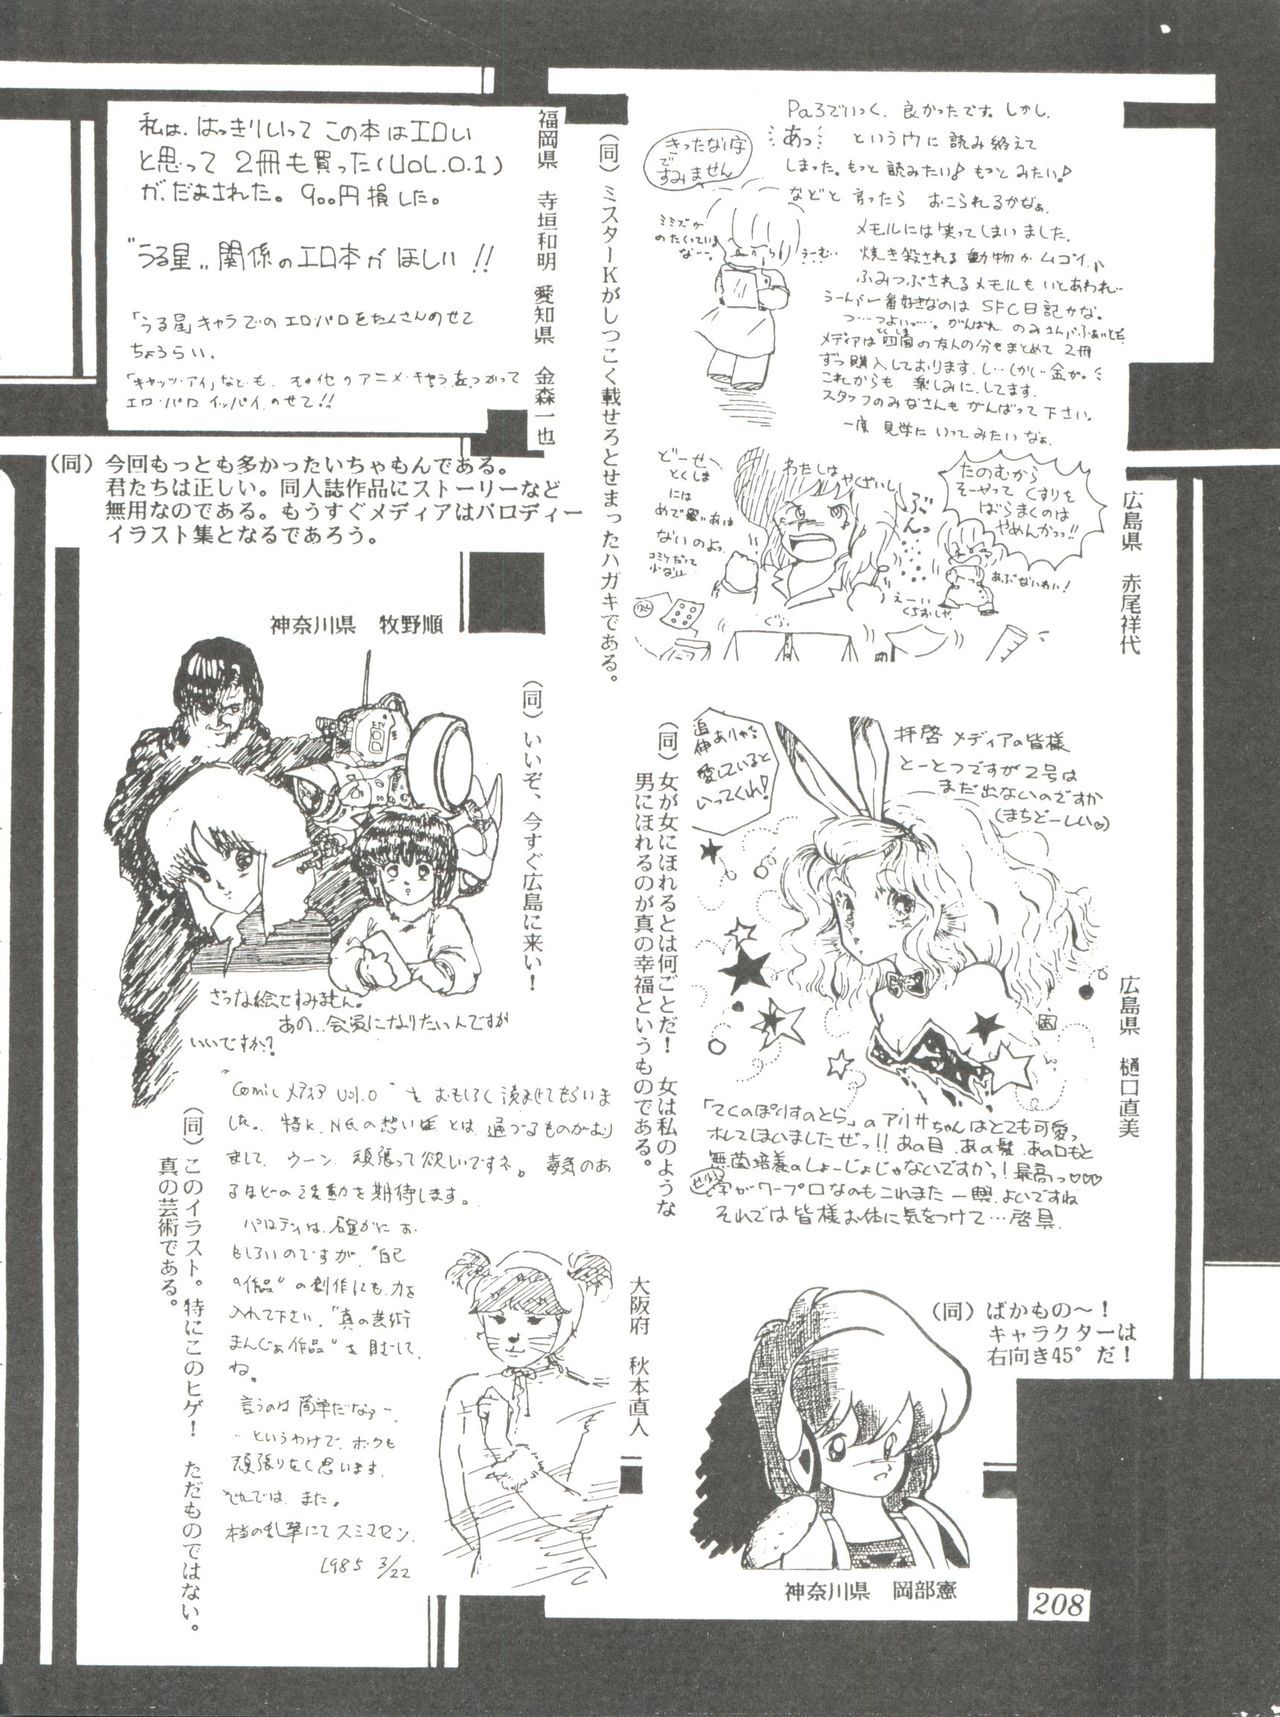 Pa3でいっく、良かったです。しかし、
あっ というウに読み終えて
しまった。もっと読みたい♪もっとみたい♪
などと言ったら おこられるかなぁ。
メモルには笑ってしまいました。
焼き殺される動物がムゴイ。
ふみつぶされるメモルもいとあわれ…
うーんバー番好きなのは SFC日記かな。
つ…つよいっ…。がんばれ のみさん
メディアは四国の友人の分もまとめて2冊
ずつ購入しております。し…しかし金が。
これからも 楽しみにしてます。
スタッフのみなさんもがんばって下さい。
一度 見学にいってみたいなぁ。
きったない字
で
すみません
ミミズが
のたくっている
なー。
うーむ
たのむから
そーやって くすりを
ばらまくのは
やめんかっっ!!
あぶないわい!
わたしは
やくざいし
ぶんっ
えーい
くちおしや
どーせ
とくしま
には
コミケだって
少ないし
広島県 赤尾祥代
(同)ミスターKがしつこく載せろとせまったハガキである。
私は、はっきりいって この本はエロい
と思って 2冊も買った(VOL.0.1)
が、だまされた。900円損した。
"うる星„関係のエロ本がほしい!!
「うる星」キャラでのエロ・パロをたくさんのせて
ちょうらい。
「キャッツ・アイ」なども、その他のアニメ・キャラをつかって
エロ・パロ イッパイ、のせて!!
福岡県 寺垣和明
愛知県 金森一也
(同)今回もっとも多かったいちゃもんである。
君たちは正しい。同人誌作品にストーリーなど
無用なのである。もうすぐメディアはパロディー
イラスト集となるであろう。
拝啓 メディアの皆様
とーとつですが2号は
まだ出ないのですか
(まちどーしい♡)
追伸
愛していると
いってくれ!
「でくのぼりすのとら」のアリサちゃんはとても可愛っ
ホレてしまいましたぜっ!!あの目、あの髪、あの口もと
無菌培養のしょーじょじゃないですかっ!最高っ♡♡♡
字がワープロなのもこれまた一興、よいですね
それでは皆様お体に気をつけて…敬具
広島県 樋口直美
(同)女が女にほれるとは何ごとだ! 女は私のような
男にほれるのが真の幸福というものである。
神奈川県 牧野順
ざつな絵ですみません。
あの..会員になりたい人ですが
いいですか?
(同)いいぞ、今すぐ広島に来い!
"Comicメディア Vol.0" をおもしろく読ませてもらいま
した。特に、N氏の想い出とは、通づるものがあり
まして、ウーン、頑張って欲しいですネ。毒気のあ
るほどの活動を期待します。
パロディは、確かにお
もしろいのですが、"自己
の作品"の創作にも、力を
入れて下さい。"真の芸術
まんが作品"を目ざして、
ね。
言うのは簡単だなぁー、
…というわけで、ボクも
頑張りたく思います。
それでは、また。
本当の乱筆にて スミマセン。
1985 3/22
大阪府 秋本直人
(同)このイラスト。特にこのヒゲ! ただものではない。
真の芸術である。
(同)ばかもの〜!
キャラクターは
右向き45°だ!
神奈川県 岡部憲
208